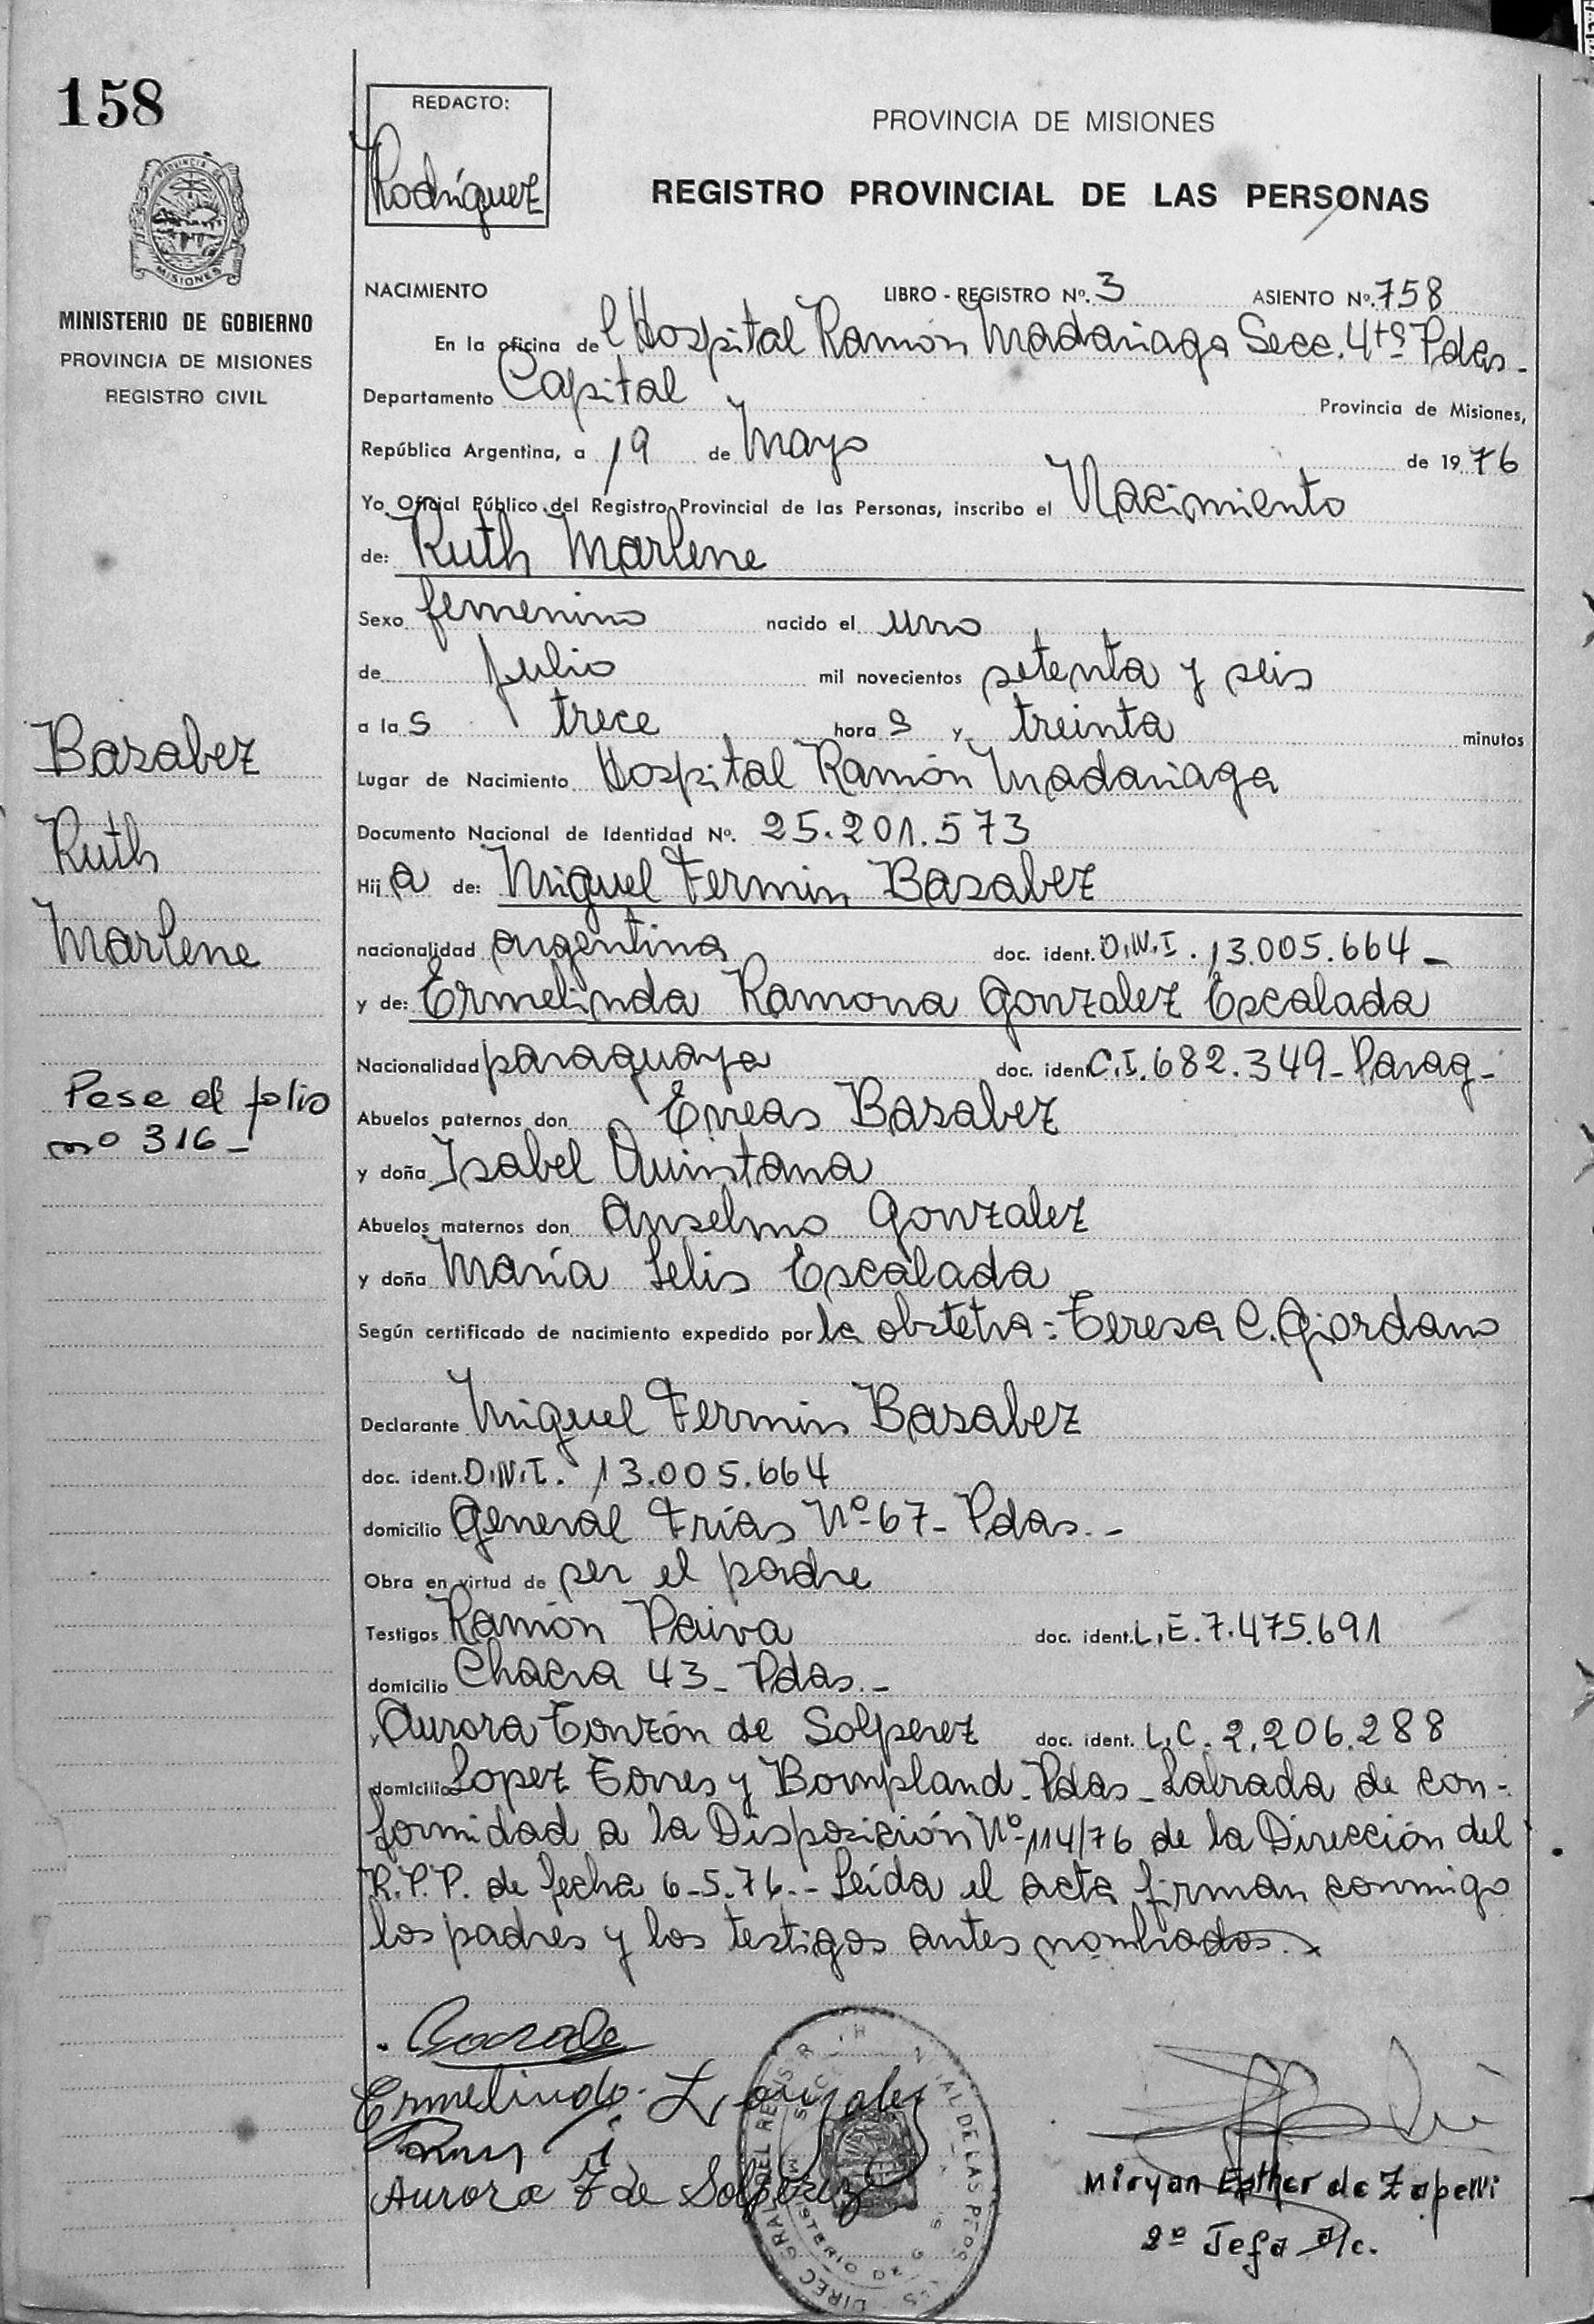 158
REDACTO:
Rodríguez
PROVINCIA DE MISIONES
REGISTRO PROVINCIAL DE LAS PERSONAS
PROVINCIA DE
MISIONES
MINISTERIO DE GOBIERNO
PROVINCIA DE MISIONES
REGISTRO CIVIL
NACIMIENTO LIBRO - REGISTRO Nº. 3 ASIENTO Nº. 758
En la oficina del Hospital Ramón Madariaga Secc. 4ta Pdas -
Departamento Capital Provincia de Misiones,
República Argentina, a 19 de Mayo de 1976
Yo Oficial Público del Registro Provincial de las Personas, inscribo el Nacimiento
de: Ruth Marlene
Sexo femenino nacido el uno
de julio mil novecientos setenta y seis
a las trece horas y treinta minutos
Lugar de Nacimiento Hospital Ramón Madariaga
Documento Nacional de Identidad Nº. 25.201.573
Hija de: Miguel Fermin Basabez
nacionalidad argentina doc. ident. D.N.I. 13.005.664 -
y de: Ermelinda Ramona Gonzalez Escalada
Nacionalidad paraguaya doc. ident. C.I. 682.349 - Parag -
Abuelos paternos don Eneas Basabez
y doña Isabel Quintana
Abuelos maternos don Anselmo Gonzalez
y doña María Selis Escalada
Según certificado de nacimiento expedido por la obstetra: Teresa C. Giordano
Declarante Miguel Fermin Basabez
doc. ident. D.N.I. 13.005.664
domicilio General Frías Nº 67 - Pdas. -
Obra en virtud de ser el padre
Testigos Ramón Paiva doc. ident. L.E. 7.475.691
domicilio Chacra 43 - Pdas. -
Aurora Tonzón de Solperez doc. ident. L.C. 2.206.288
domicilio Lopez Torres y Bompland - Pdas - Labrada de con-
formidad a la Disposición Nº 114/76 de la Dirección del
R.P.P. de fecha 6-5-76. - Leída el acta firman conmigo
los padres y los testigos antes nombrados.
Basabez
Ruth
Marlene
Pase al folio
nº 316 -
Ermelinda Gonzalez
Aurora T de Solperez
Miryan Esther de Zapelli
2º Jefa A/c.